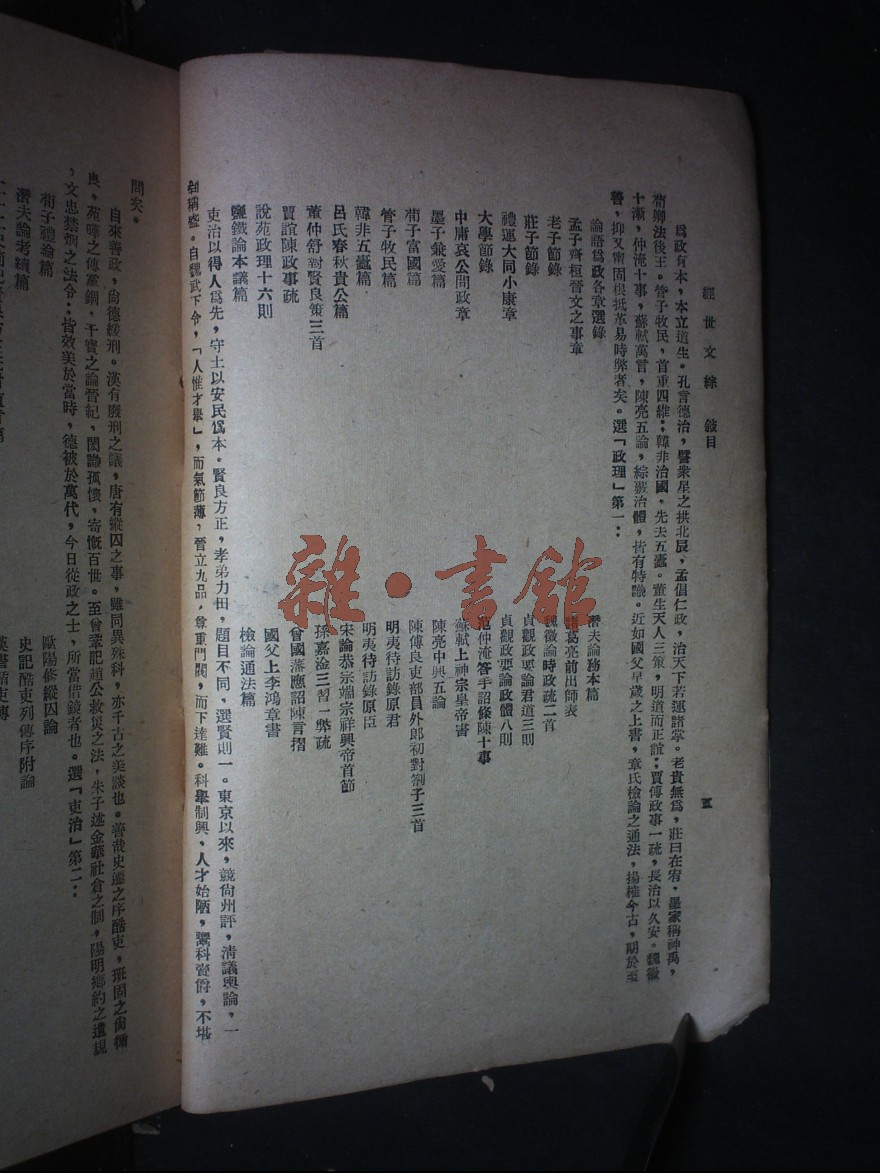 經世文綜 敍目
五
爲政有本,本立道生。孔言德治,譬衆星之拱北辰,孟倡仁政,治天下若運諸掌。老貴無爲,莊曰在宥,墨家稱神禹,
荀卿法後王。管子牧民,首重四維;韓非治國,先去五蠹。董生天人三策,明道而正誼;賈傅政事一疏,長治以久安。魏徵
十漸,仲淹十事,蘇軾萬言,陳亮五論,綜覈治體,皆有特識。近如國父早歲之上書,章氏檢論之通法,揚榷今古,期於至
善,抑又甯固根柢革易時弊者矣。選「政理」第一:
論語爲政各章選錄
孟子齊桓晉文之事章
老子節錄
莊子節錄
禮運大同小康章
大學節錄
中庸哀公問政章
墨子兼愛篇
荀子富國篇
管子牧民篇
韓非五蠹篇
呂氏春秋貴公篇
董仲舒對賢良策三首
賈誼陳政事疏
說苑政理十六則
鹽鐵論本議篇
潛夫論務本篇
諸葛亮前出師表
魏徵論時政疏二首
貞觀政要論君道三則
貞觀政要論政體八則
范仲淹答手詔條陳十事
蘇軾上神宗皇帝書
陳亮中興五論
陳傅良吏部員外郎初對劄子三首
明夷待訪錄原君
明夷待訪錄原臣
宋論恭宗端宗祥興帝首節
孫嘉淦三習一弊疏
曾國藩應詔陳言摺
國父上李鴻章書
檢論通法篇
吏治以得人爲先,守土以安民爲本。賢良方正,孝弟力田,題目不同,選賢則一。東京以來,競尙州評,淸議輿論,一
制稱盛。自魏武下令,「人惟才舉」,而氣節薄,晉立九品,尊重門閥,而下達難。科舉制興,人才始陋,鬻科賣爵,不堪
問矣。
自來善政,尙德緩刑。漢有廢刑之議,唐有縱囚之事,雖同異殊科,亦千古之美談也。善哉史遷之序酷吏,班固之尙循
良,范曄之傳黨錮,干寶之論晉紀,閎識孤懷,寄慨百世。至曾鞏記趙公救災之法,朱子述金華社倉之制,陽明鄕約之遺規
,文忠禁烟之法令:皆效美於當時,德被於萬代,今日從政之士,所當借鏡者也。選「吏治」第二:
荀子禮論篇
潛夫論考績篇
歐陽修縱囚論
史記酷吏列傳序附論
雜·書館